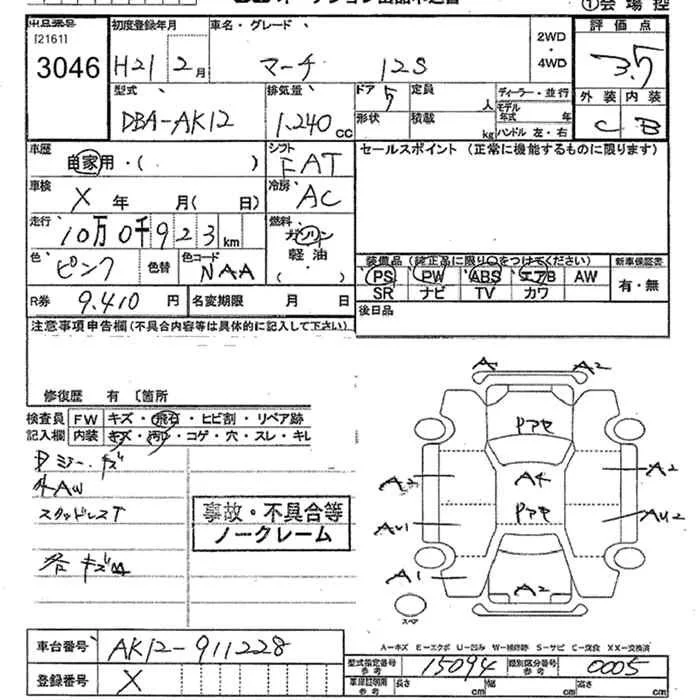 ①会場控
出品番号 初度登録年月 車名・グレード 2WD・4WD 評価点
[2161]
3046 H21 2月 マーチ 12S 3.5
型式 排気量 ドア 5 定員 人 ディーラー・並行 外装 内装
DBA-AK12 1.240cc 形状 積載 kg モデル年式 年 ハンドル 左・右 C B
車歴 自家用・( ) シフト FAT セールスポイント (正常に機能するものに限ります)
車検 X 年 月( 日) 冷房 AC
走行 10万0千923km 燃料 ガソリン・軽油・( )
色 ピンク 色替 色コード NAA 装備品(純正品に限り○をつけてください) 新車保証書
PS PW ABS エアB AW 有・無
SR ナビ TV カワ
R券 9.410円 名変期限 月 日 後日品
注意事項申告欄(不具合内容等は具体的に記入して下さい)
修復歴 有 〔箇所
検査員記入欄 FW キズ・飛石・ヒビ割・リペア跡
内装 キズ・汚レ・コゲ・穴・スレ・キレ
外AW
スタッドレスT
事故・不具合等
ノークレーム
A A2
Pアセ
A2 AK A2
Pアセ
AU1 AU2
A1 A2
スペア
A-キズ E-エクボ U-凹み W-補修跡 S-サビ C-腐食 XX-交換済
車台番号 AK12-911228
型式指定番号 参考 15094 類別区分番号 参考 0005
登録番号 X
長さ cm 幅 cm 高さ cm